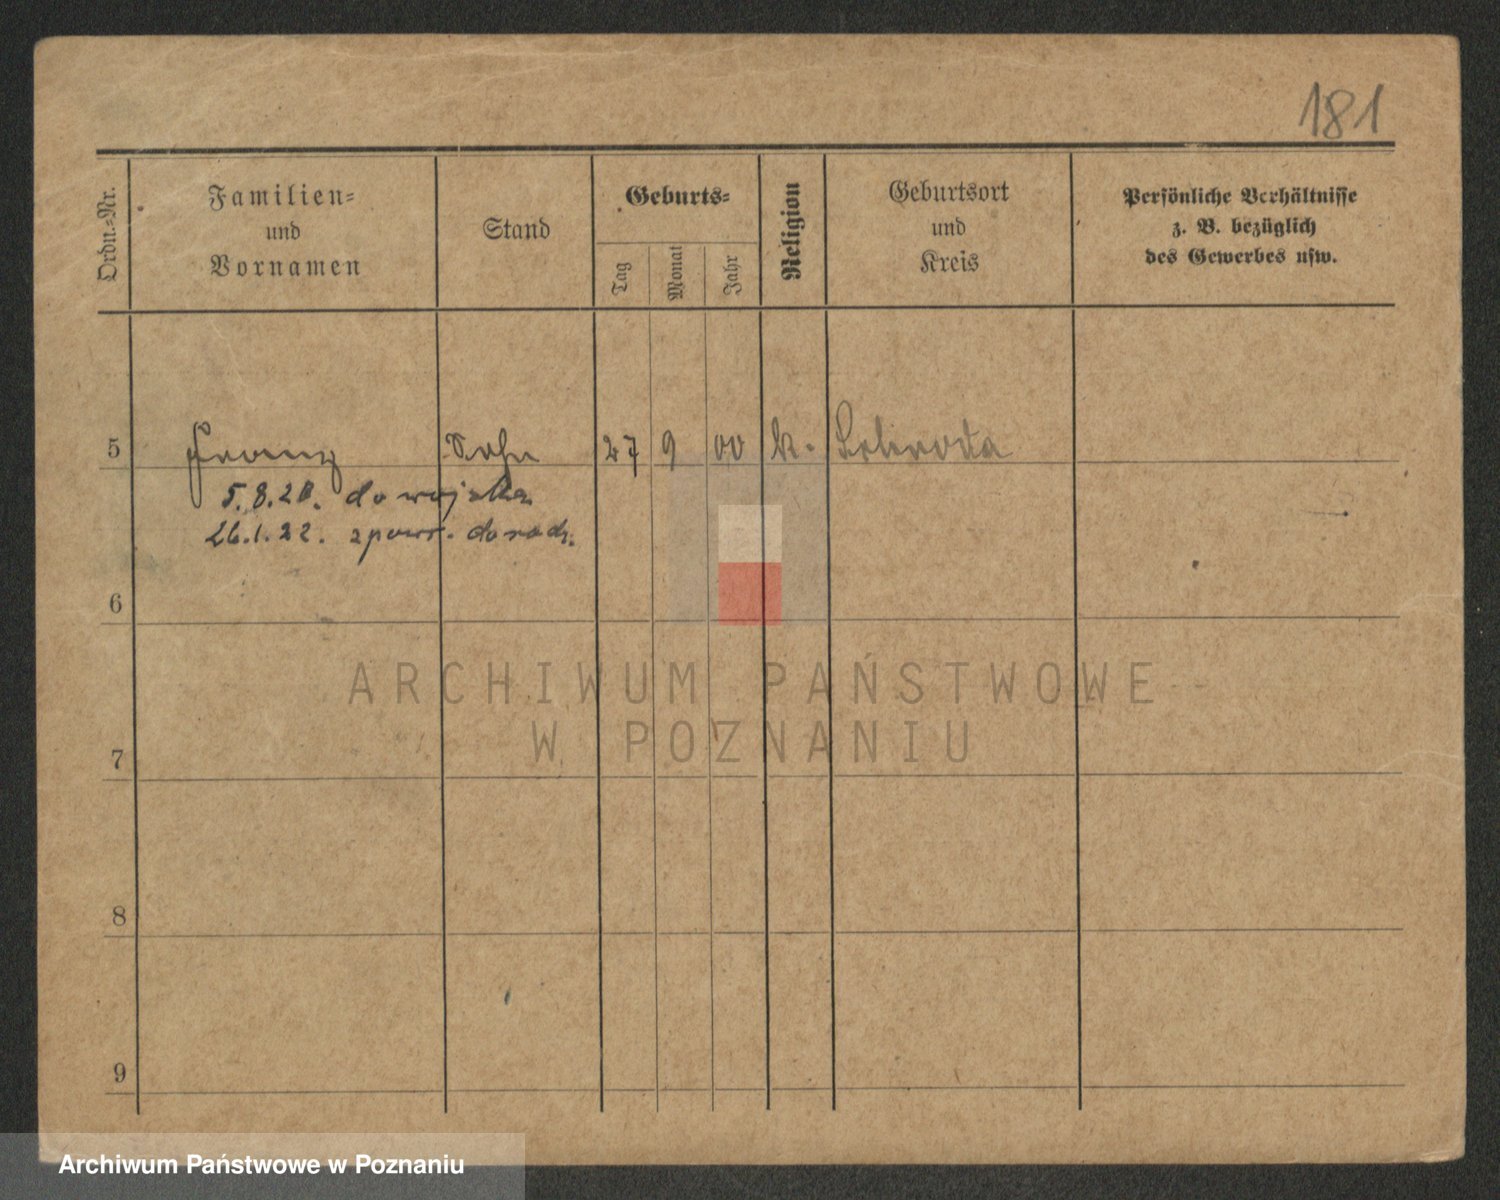 181
Ordn.-Nr.
Familien-
und
Vornamen
Stand
Geburts-
Tag
Monat
Jahr
Religion
Geburtsort
und
Kreis
Persönliche Verhältnisse
z. B. bezüglich
des Gewerbes usw.
5 Franz Sohn 27 9 00 k. Schroda
5.8.20. do wojska
26.1.22. z powr. do rodz.
6
7
8
9
ARCHIWUM PAŃSTWOWE
W POZNANIU
Archiwum Państwowe w Poznaniu